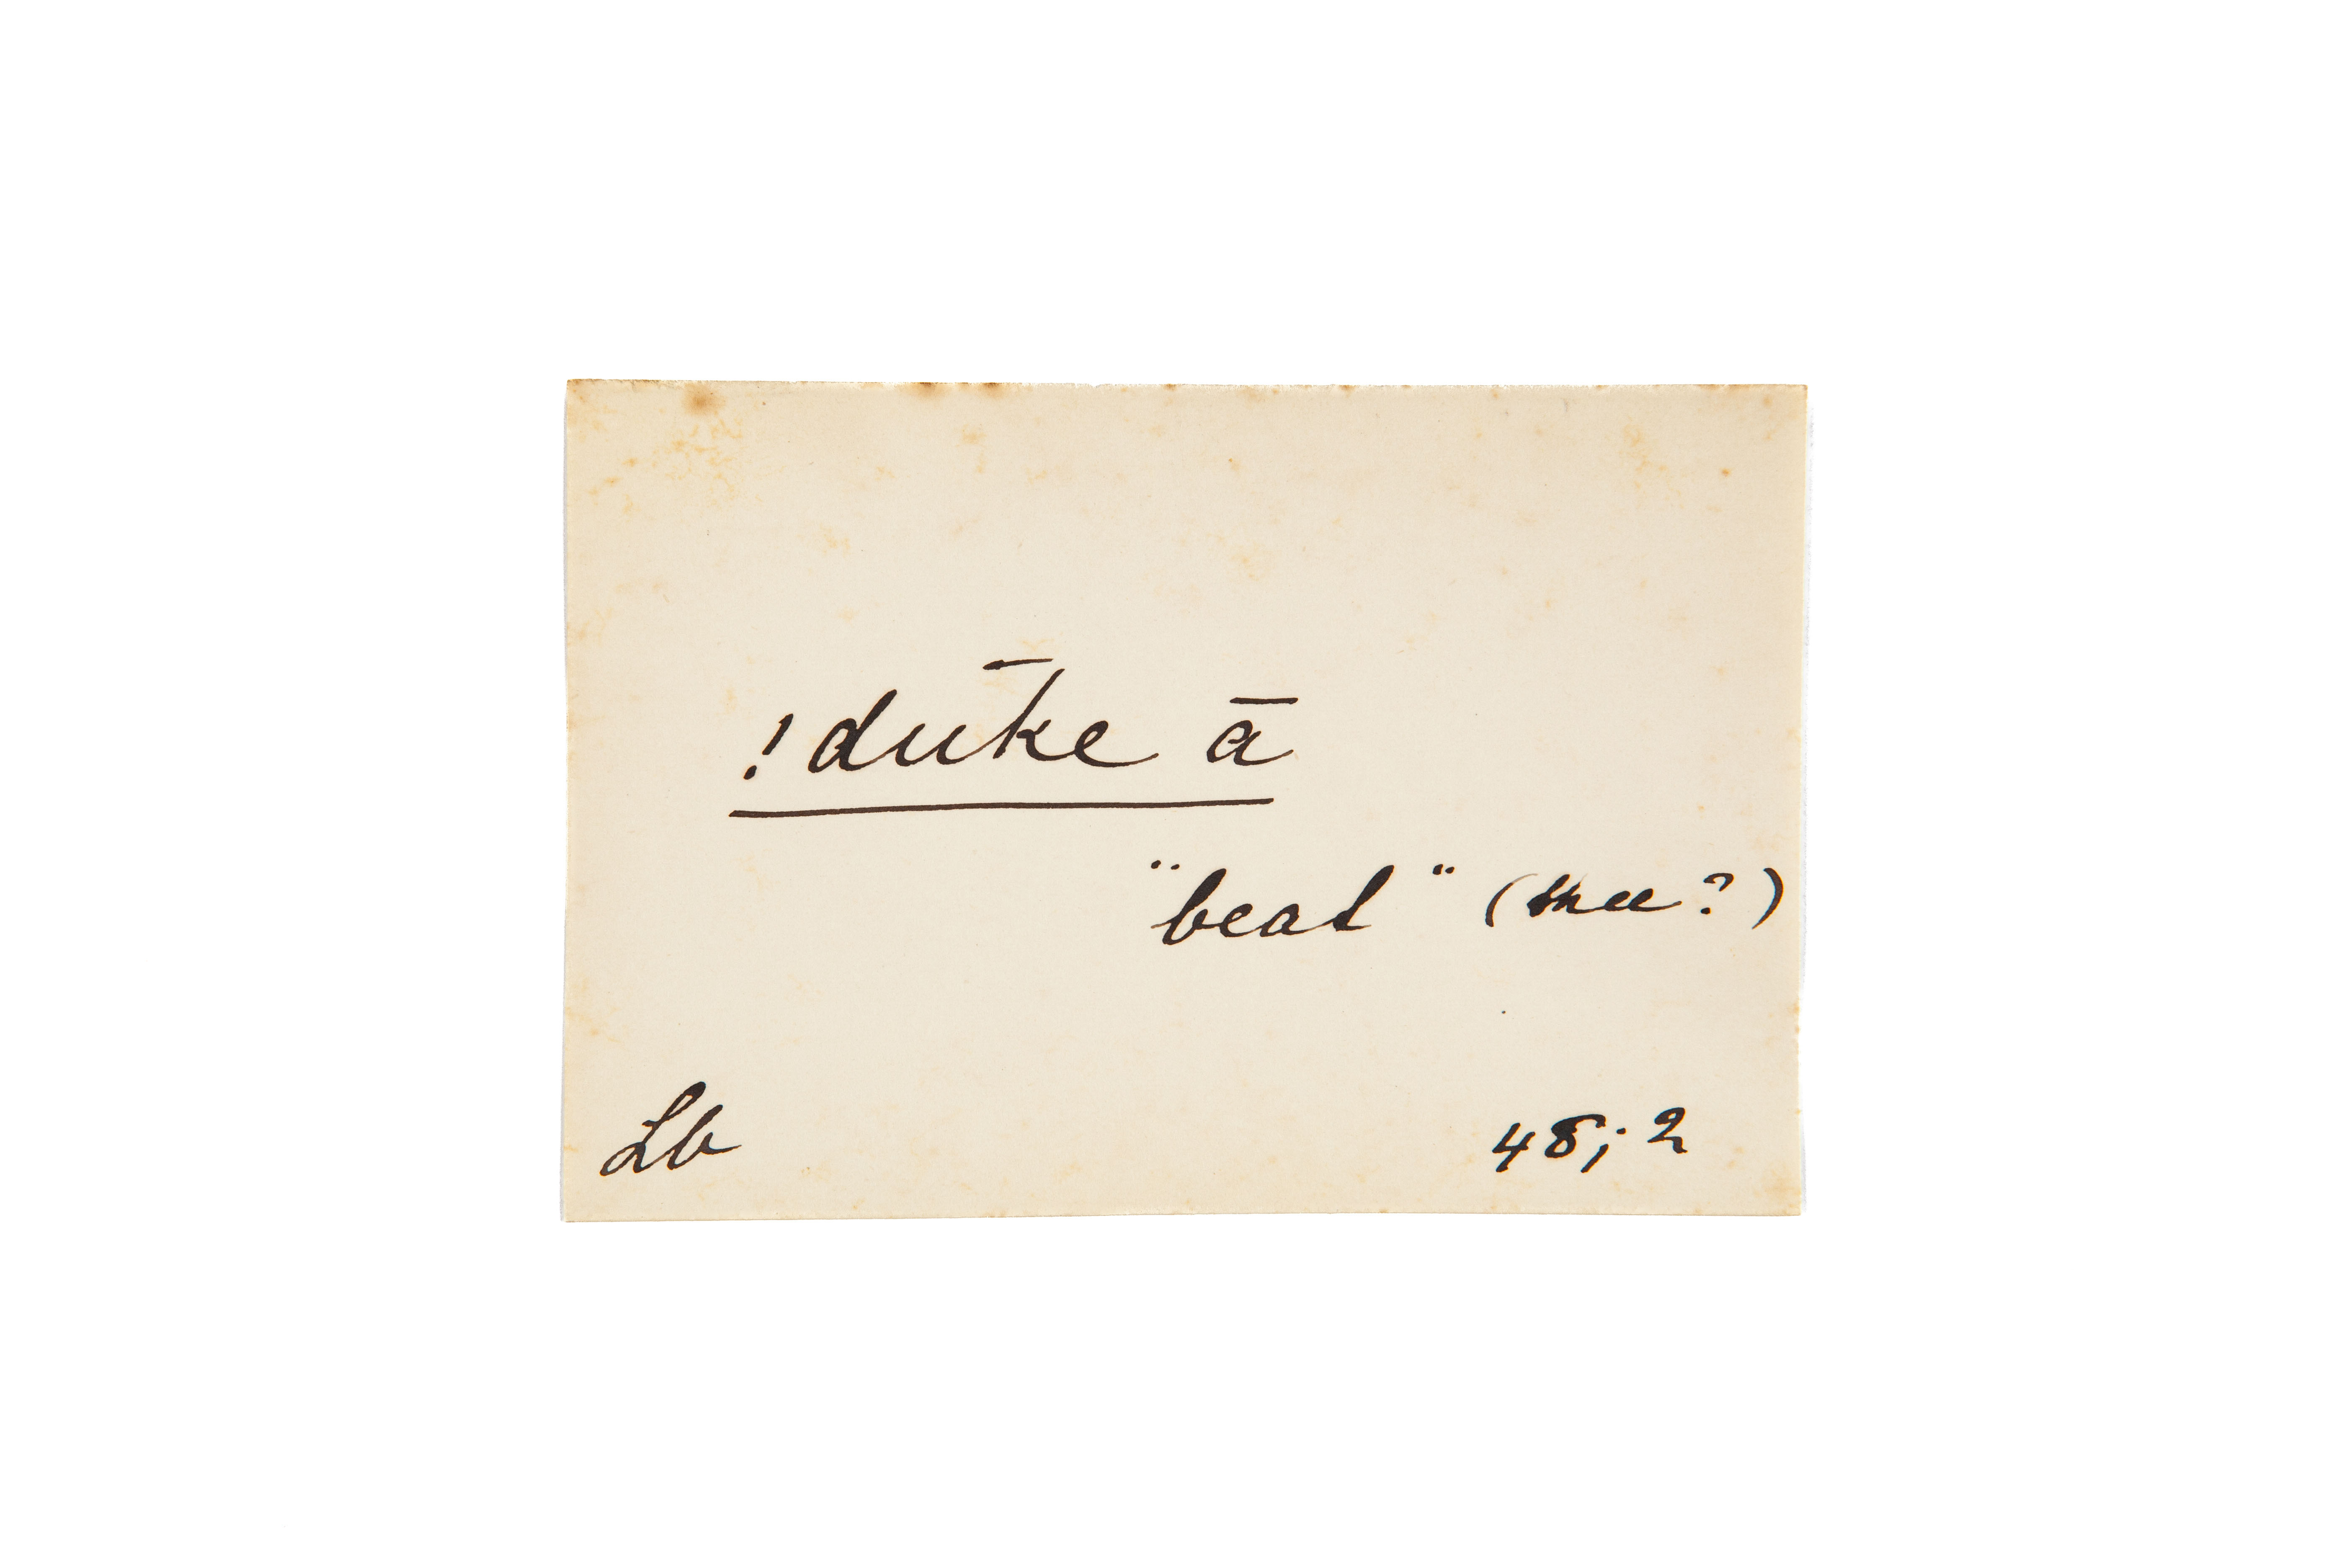 !dūke ā
"beat" (thee?)
Lb 48; 2